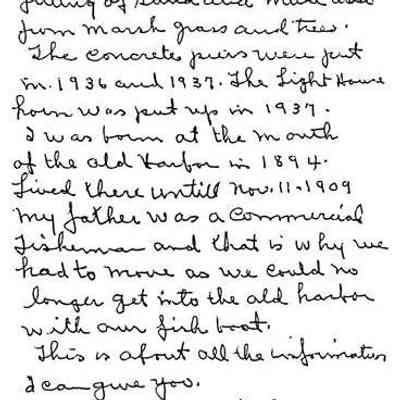 filling of sand and weeds also
from marsh grass and trees.
The concrete piers were put
in. 1936 and 1937. The Light House
horn was put up in 1937.
I was born at the mouth
of the old Harbor in 1894.
Lived there untill Nov. 11-1909
my father was a commercial
Fisherman and that is why we
had to move as we could no
longer get into the old harbor
with our fish boat.
This is about all the information
I can give you.